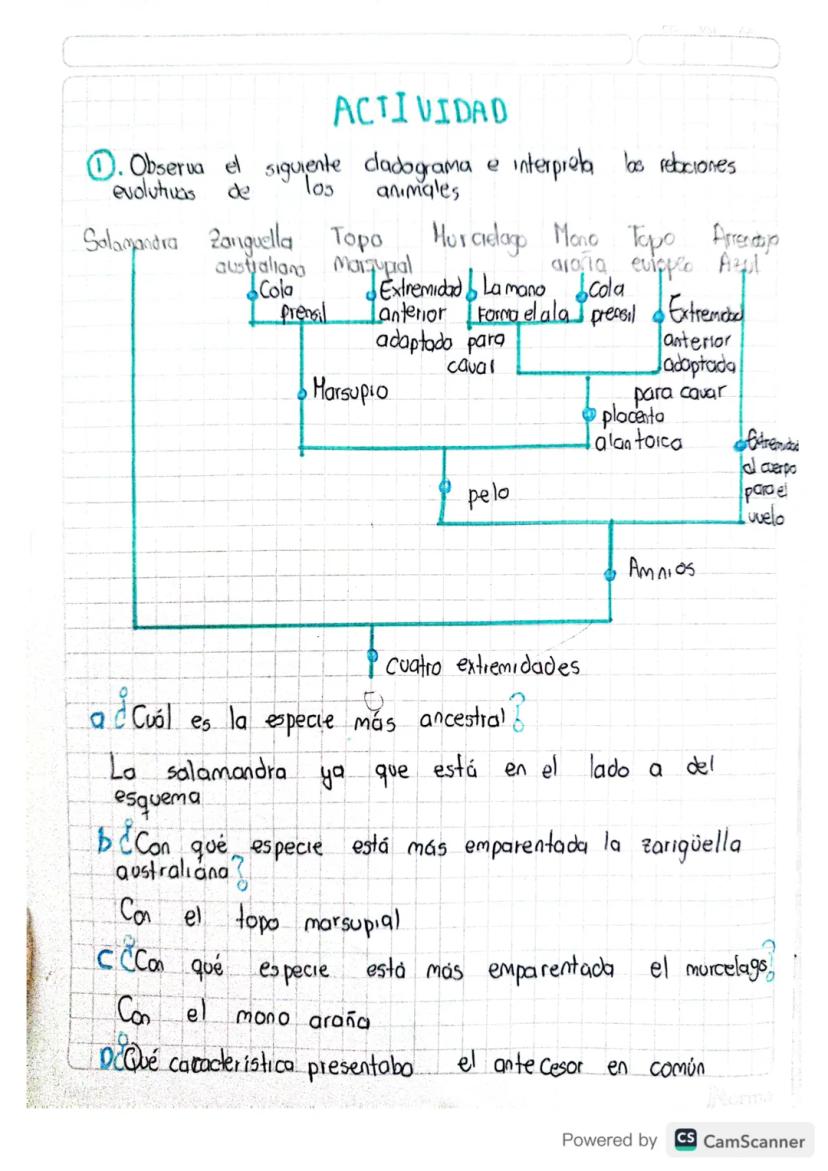 ACTIVIDAD
①. Observa el siguiente cladograma e interpreta las relaciones
evolutivas de los animales
Salamandra Zariguella Topo Murcielago Mono Topo Arrendajo
australiana Marsupial araña europeo Azul
Cola Extremidad La mano Cola
prensil anterior forma el ala prensil Extremidad
adaptado para anterior
cavar adaptada
Marsupio para cavar
placenta
alantoica Extremidad
al cuerpo
pelo para el
vuelo
Amnios
cuatro extremidades
a ¿Cuál es la especie más ancestral?
La salamandra ya que está en el lado a del
esquema
b ¿Con qué especie está más emparentada la zarigüella
australiana?
Con el topo marsupial
c ¿Con qué especie está más emparentada el murcelago?
Con el mono araña
D ¿Qué característica presentaba el antecesor en común
Norma
Powered by CS CamScanner